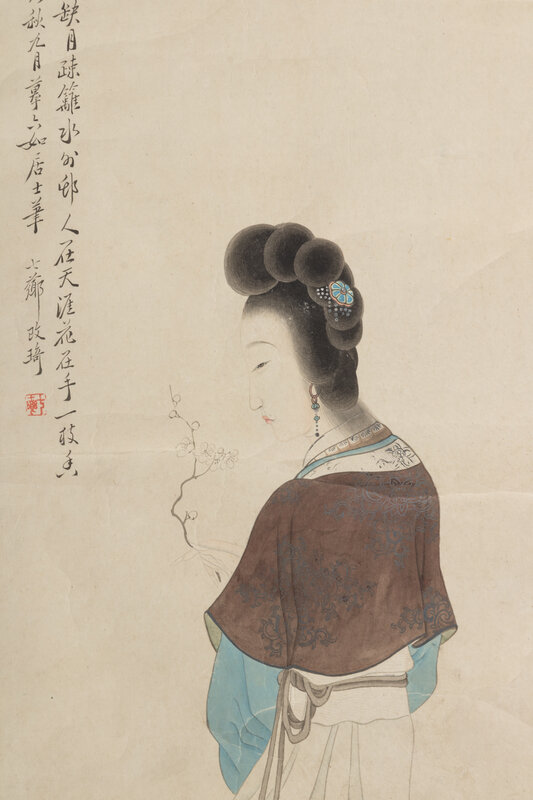 缺月疎籬水外邨人在天涯花在手一枝香
秋九月摹六如居士筆 七薌改琦